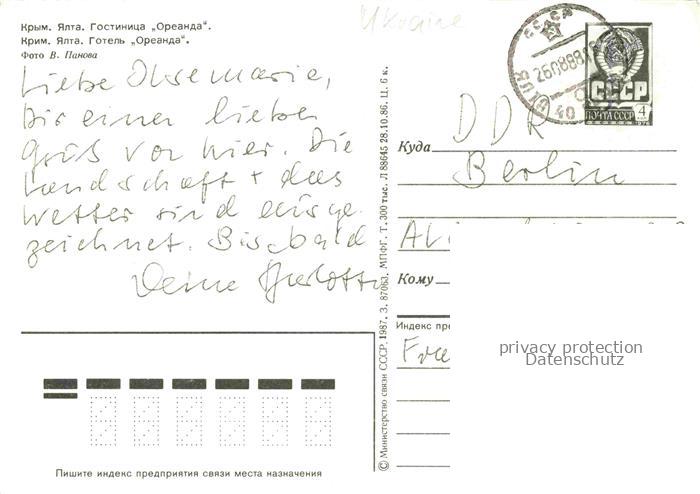 Крым. Ялта. Гостиница „Ореанда".
Крим. Ялта. Готель „Ореанда".
Фото В. Панова
Ukraine
Liebe
Dir einen lieben
Gruß von hier. Die
Landschaft + das
Wetter sind ausge-
zeichnet. Bis bald
Deine
СССР
260888
СССР
ПОЧТА СССР 4
Куда
DDR
Berlin
Кому
Индекс
privacy protection
Datenschutz
© Министерство связи СССР. 1987. З. 87063. МПФГ. Т. 300 тыс. Л 88645 28.10.86. Ц. 6 к.
Пишите индекс предприятия связи места назначения